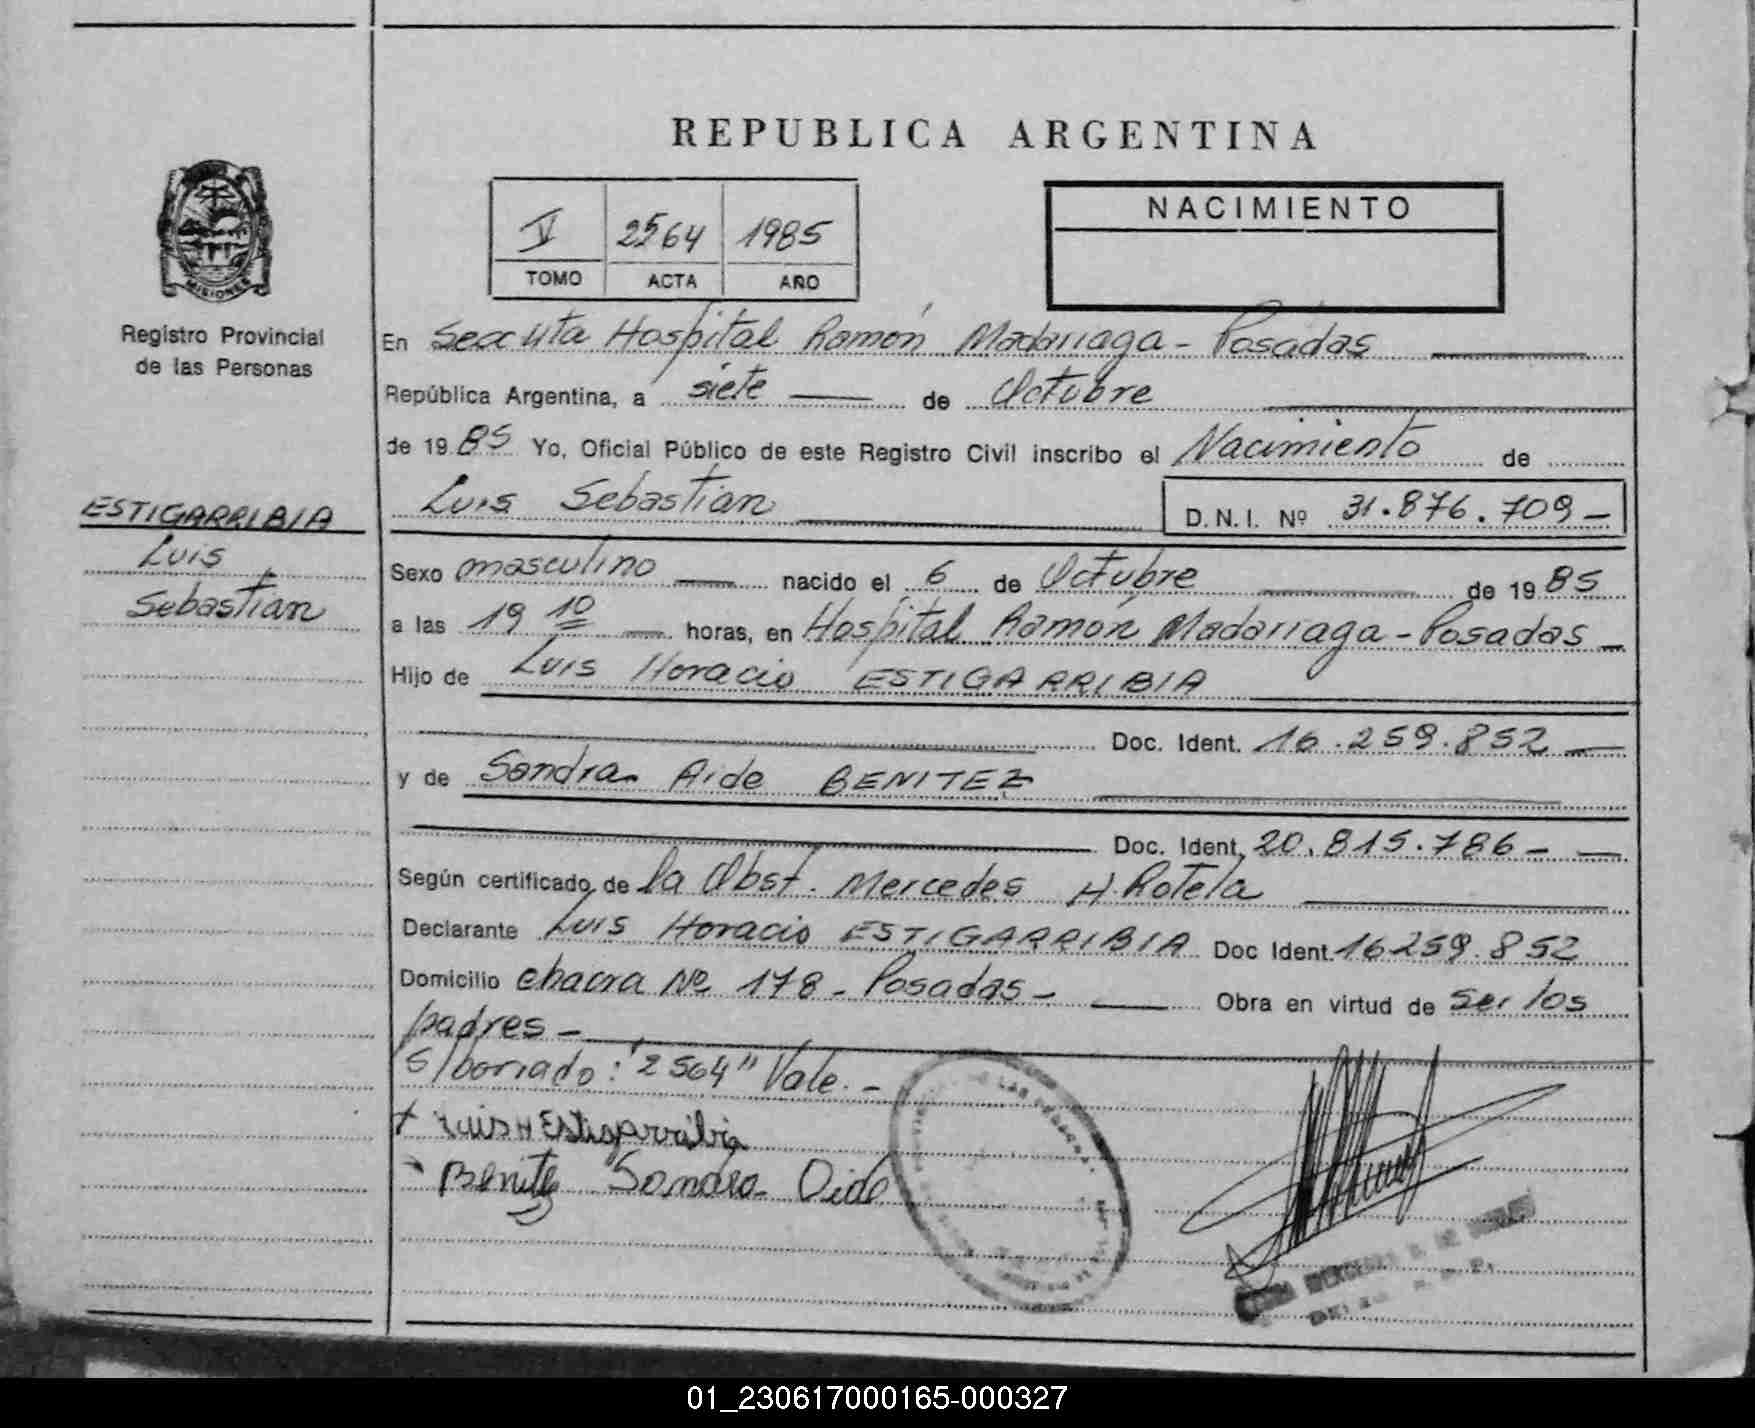 REPUBLICA ARGENTINA
V 2564 1985
TOMO ACTA AÑO
NACIMIENTO
MISIONES
Registro Provincial
de las Personas
En Secc Uta Hospital Ramón Madariaga - Posadas
República Argentina, a siete de Octubre
de 1985 Yo, Oficial Público de este Registro Civil inscribo el Nacimiento de
Luis Sebastian D.N.I. Nº 31.876.709-
ESTIGARRIBIA
Luis
Sebastian
Sexo masculino nacido el 6 de Octubre de 1985
a las 19 10 horas, en Hospital Ramón Madariaga - Posadas
Hijo de Luis Horacio ESTIGARRIBIA
Doc. Ident. 16.259.852
y de Sandra Aide BENITEZ
Doc. Ident. 20.815.786-
Según certificado de la Obst. Mercedes H. Rotela
Declarante Luis Horacio ESTIGARRIBIA Doc Ident. 16259.852
Domicilio chacra Nº 178 - Posadas - Obra en virtud de ser los
padres -
S/borrado: "2564" Vale. -
Luis H Estigarribia
Benitez Sandra Aide
01_230617000165-000327